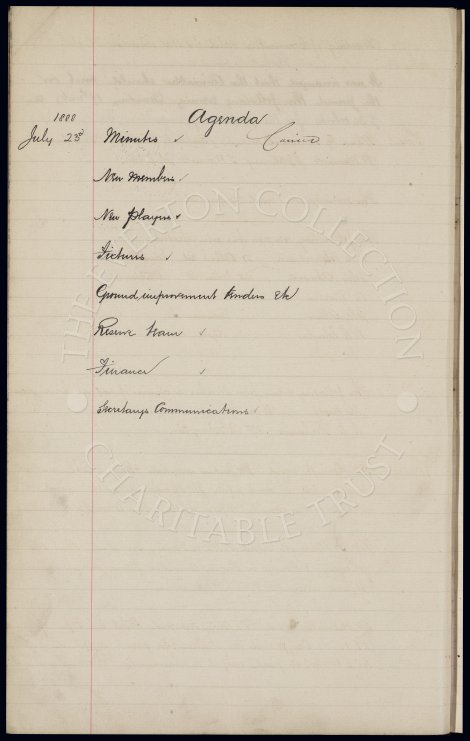 1888
Agenda
July 23rd Minutes ✓ Carried
New members ✓
New players ✓
Fixtures ✓
Ground improvement tenders etc
Reserve team ✓
Finance ✓
Secretarys Communications ✓
THE EVERTON COLLECTION
CHARITABLE TRUST